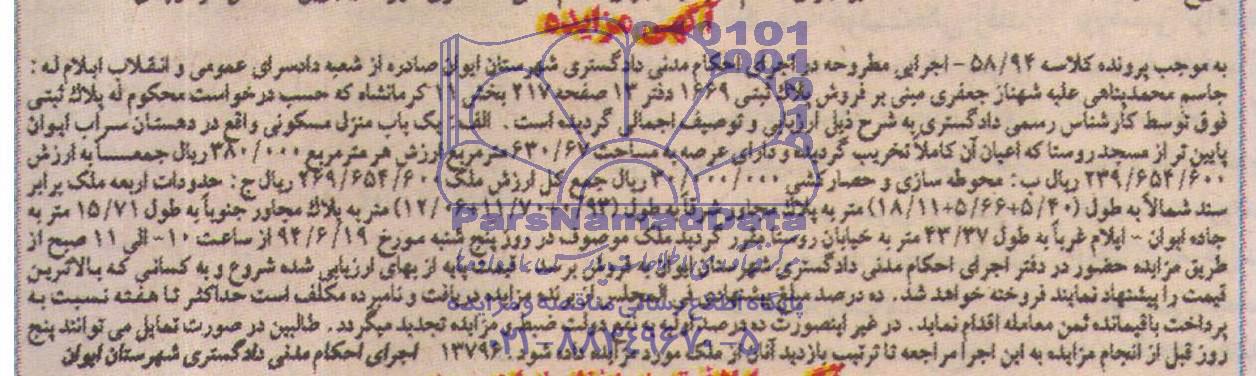 آگهی مزایده
به موجب پرونده کلاسه ۵۸/۹۴ - اجرایی مطروحه در اجرای احکام مدنی دادگستری شهرستان ایوان صادره از شعبه دادسرای عمومی و انقلاب ایلام له :
جاسم محمدپناهی علیه شهناز جعفری مبنی بر فروش پلاک ثبتی ۱۶۶۹ دفتر ۱۳ صفحه ۲۱۷ بخش ۱۱ کرمانشاه که حسب درخواست محکوم له پلاک ثبتی
فوق توسط کارشناس رسمی دادگستری به شرح ذیل ارزیابی و توصیف اجمالی گردیده است . الف: یک باب منزل مسکونی واقع در دهستان سراب ایوان
پایین تر از مسجد روستا که اعیان آن کاملاً تخریب گردیده و دارای عرصه به مساحت ۶۳۰/۶۷ مترمربع ارزش هر مترمربع ۳۸۰/۰۰۰ ریال جمعساً به ارزش
۲۳۹/۶۵۴/۶۰۰ ریال ب: محوطه سازی و حصارکشی ۳۰/۰۰۰/۰۰۰ ریال جمع کل ارزش ملک ۲۶۹/۶۵۴/۶۰۰ ریال ج: حدودات اربعه ملک برابر
سند شمالاً به طول (۵/۴۰+۵/۶۶+۱۸/۱۱) متر به پلاک مجاور شرقاً به طول متر به پلاک مجاور جنوباً به طول ۱۵/۷۱ متر به
جاده ایوان - ایلام غرباً به طول ۴۳/۳۷ متر به خیابان روستا مقرر گردید ملک موصوف در روز پنج شنبه مورخ ۹۴/۶/۱۹ از ساعت ۱۰- الی ۱۱ صبح از
طریق مزایده حضور در دفتر اجرای احکام مدنی دادگستری شهرستان ایوان به فروش برسد . قیمت پایه از بهای ارزیابی شده شروع و به کسانی که بالاترین
قیمت را پیشنهاد نمایند فروخته خواهد شد . ده درصد مبلغ پیشنهادی فی المجلس از برنده مزایده دریافت و نامبرده مکلف است حداکثر تا هفته نسبت به
پرداخت باقیمانده ثمن معامله اقدام نماید . در غیر اینصورت ده درصد اولیه به نفع دولت ضبط و مزایده تجدید میگردد . طالبین در صورت تمایل می توانند پنج
روز قبل از انجام مزایده به این اجرا مراجعه تا ترتیب بازدید آنان از ملک مورد مزایده داده شود . ۱۳۷۹۶ اجرای احکام مدنی دادگستری شهرستان ایوان
ParsNamadData
پایگاه اطلاع رسانی مناقصه و مزایده
۰۲۱-۸۸۳۴۹۶۷۰-۵